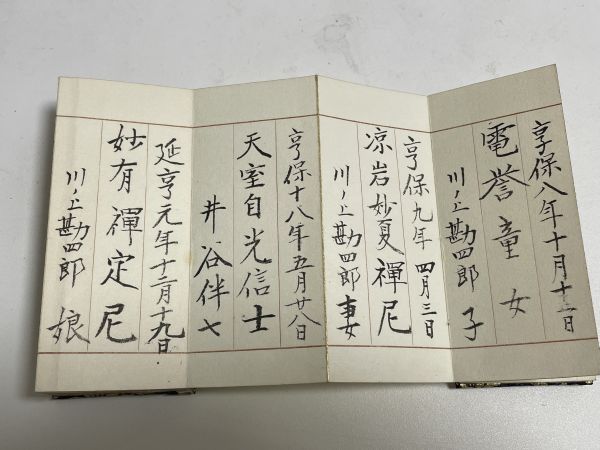 享保八年十月十二日
電誉童女
川ノ上勘四郎 子
享保九年 四月三日
凉岩妙夏禪尼
川ノ上勘四郎 妻
享保十八年五月廿八日
天室自光信士
井谷伴七
延享元年十二月十九日
妙有禪定尼
川ノ上勘四郎 娘